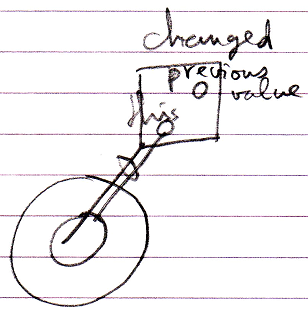 changed
previous
value
this